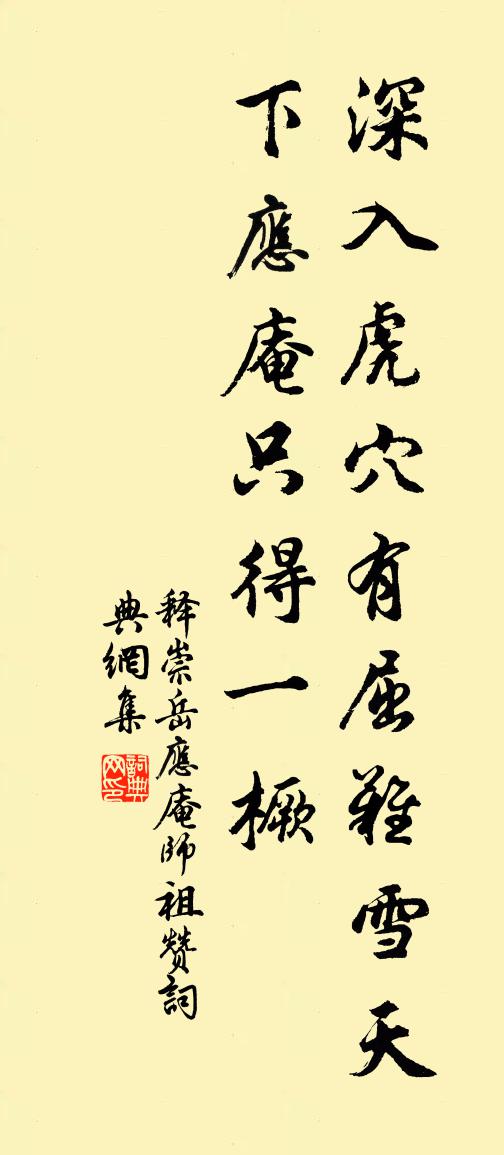 深入虎穴有屈難雪天
下應庵只得一橛
釋崇岳應庵師祖赞詞
典網集
詞典
网印